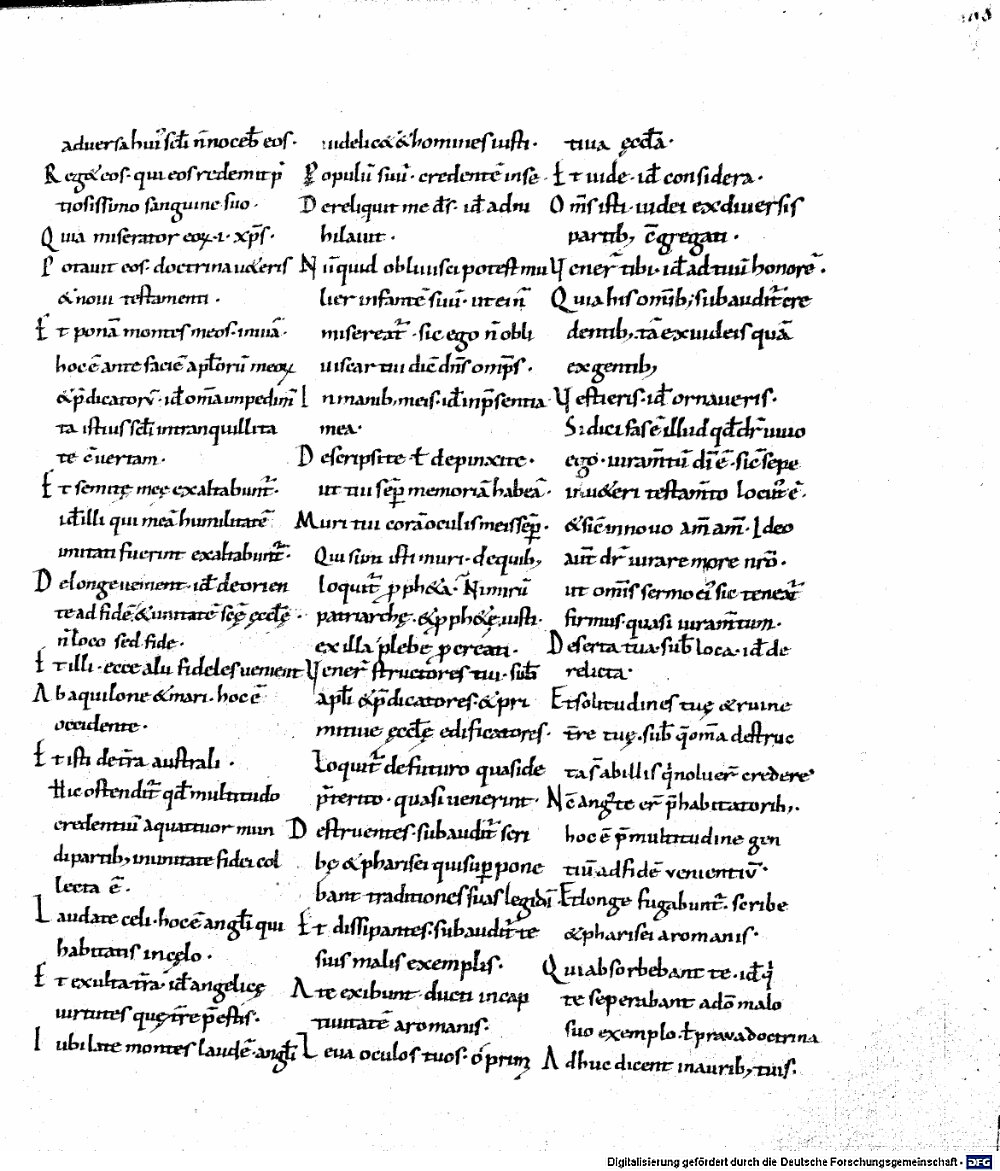 adversa hui' scłi n̄ noceb̄ eos·
Reg& eos· qui eos redemit p̄
tiosissimo sanguine suo·
Quia miserator eoꝝ·i·xp̄s·
Potauit eos· doctrina u&eris
& noui testamenti·
Et ponā montes meos· in uiā·
hoc ē ante faciē apłorū meoꝝ
& p̄dicatorū· id̄ om̄a impedim̄
ta istius scłi in tranquillita
te c̄uertam·
Et semitę meę exaltabunt̄·
id̄ illi qui meā humilitatē
imitati fuerint exaltabunt̄·
De longe uenient· id̄ de orien
te ad fidē & unitatē scę̄ ęcclę̄·
n̄ loco sed fide·
Et illi· ecce alii fideles uenient
Ab aquilone & mari· hoc ē
occidente·
Et isti de t̄ra australi·
Hic ostendit̄ qd̄ multitudo
credentiū a quattuor mun
di partib; in unitate fidei col
lecta ē·
Laudate celi· hoc ē angłi qui
habitatis in cęlo·
Et exulta t̄ra· id̄ angelicę
uirtutes quę t̄re p̄estis·
Iubilate montes laudē· angłi
iudelic& & homines iusti·
Populū suū· credentē in se
Dereliquit me ds̄· id̄ adni
hilauit·
Nūquid obliuisci potest mu
lier infantē suū· ut ei n̄
misereat̄· sic ego n̄ obli
uiscar tui dic̄ dn̄s omp̄s·
In manib; meis· id̄ in p̄sentia
mea·
Descripsi te ł depinxi te·
ut tui sēp memoriā habeā·
Muri tui corā oculis meis sēp·
Qui sunt isti muri· de quib;
loquit̄ p̱ph&a· Nimirū
patriarchę· & p̱ph&ę iusti·
ex illa plebe p̱creati·
Vener̄ structores tui· sub̄
apłi & p̄dicatores· & pri
mitiue ęcclę̄ edificatores·
Loquit̄ de futuro quasi de
p̄terito· quasi uenerint·
Destruentes· subaudit̄ scri
bę & pharisei qui sup̱pone
bant traditiones suas legi dī
Et dissipantes· subaudit̄ te
suis malis exemplis·
A te exibunt· ducti in cap
tiuitatē a romanis·
Leua oculos tuos· o prim
tiua ęccła·
Et uide· id̄ considera·
Om̄s isti· iudei ex diuersis
partib; c̄gregati·
Vener̄ tibi· id̄ ad tuū honorē·
Quia his om̄ib; subaudit̄ cre
dentib; tā ex iudeis quā
ex gentib;
Vestieris· id̄ ornaueris·
Si dici fas ē illud qd̄ dr̄ uiuo
ego· iuram̄tū dī ē· sic sepe
in u&eri testam̄to locut' ē·
& sic in nouo am̄ am̄· Ideo
aut̄ dr̄ iurare more nr̄o·
ut om̄is sermo ei' sic teneat̄
firmus· quasi iuram̄tum·
Deserta tua· sub̄ loca· id̄ de
relicta·
Et solitudines tuę & ruine
t̄re tuę· sub̄ q̄ om̄a destruc
ta s̄ ab illis q̇ noluer̄ credere·
Nc̄ angūste er̄ p̄ habitatorib;·
hoc ē p̄ multitudine gen
tiū ad fidē venientiū·
Et longe fugabunt̄· scribe
& pharisei a romanis·
Qui absorbebant te· id̄ q̇
te seperabant a dō malo
suo exemplo· ł prava doctrina
Adhuc dicent in aurib; tuis·
Digitalisierung gefördert durch die Deutsche Forschungsgemeinschaft - DFG